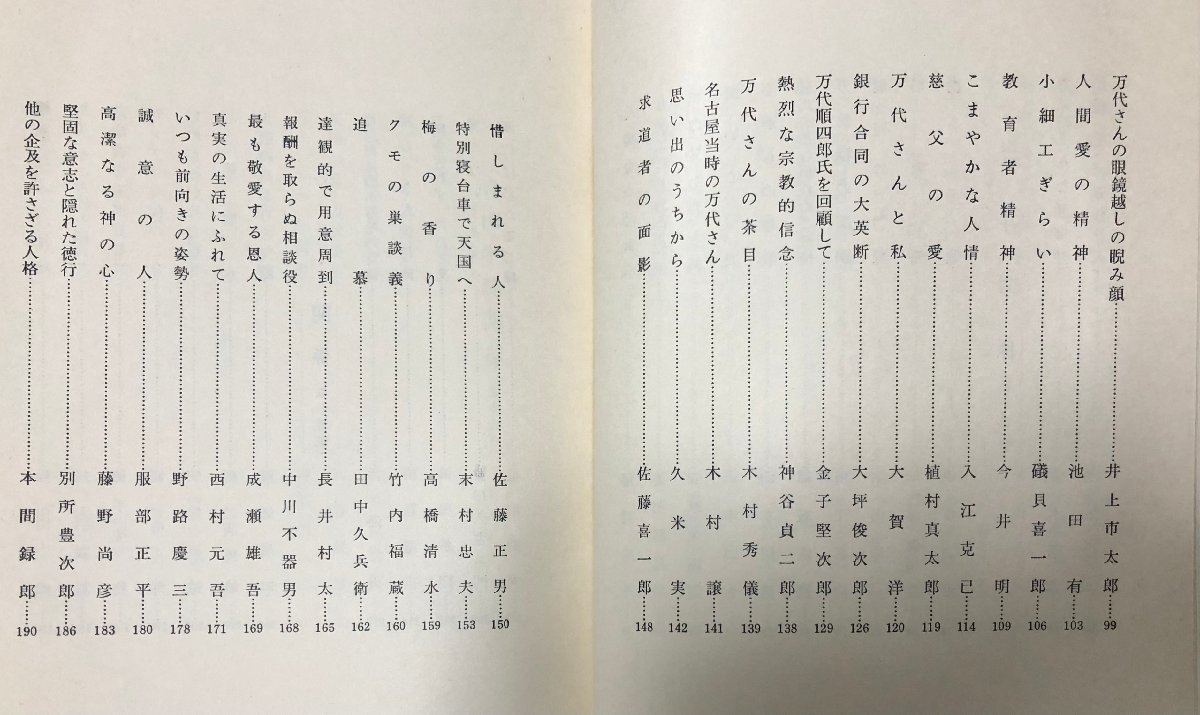 万代さんの眼鏡越しの睨み顔……井上市太郎……99
人間愛の精神……池田有……103
小細工ぎらい……礒貝喜一郎……106
教育者精神……今井明……109
こまやかな人情……入江克已……114
慈父の愛……植村真太郎……119
万代さんと私……大賀洋……120
銀行合同の大英断……大坪俊次郎……126
万代順四郎氏を回顧して……金子堅次郎……129
熱烈な宗教的信念……神谷貞二郎……138
万代さんの茶目……木村秀儀……139
名古屋当時の万代さん……木村譲……141
思い出のうちから……久米実……142
求道者の面影……佐藤喜一郎……148
惜しまれる人……佐藤正男……150
特別寝台車で天国へ……末村忠夫……153
梅の香り……高橋清水……159
クモの巣談義……竹内福蔵……160
追慕……田中久兵衛……162
達観的で用意周到……長井村太……165
報酬を取らぬ相談役……中川不器男……168
最も敬愛する恩人……成瀬雄吾……169
真実の生活にふれて……西村元吾……171
いつも前向きの姿勢……野路慶三……178
誠意の人……服部正平……180
高潔なる神の心……藤野尚彦……183
堅固な意志と隠れた徳行……別所豊次郎……186
他の企及を許さざる人格……本間録郎……190